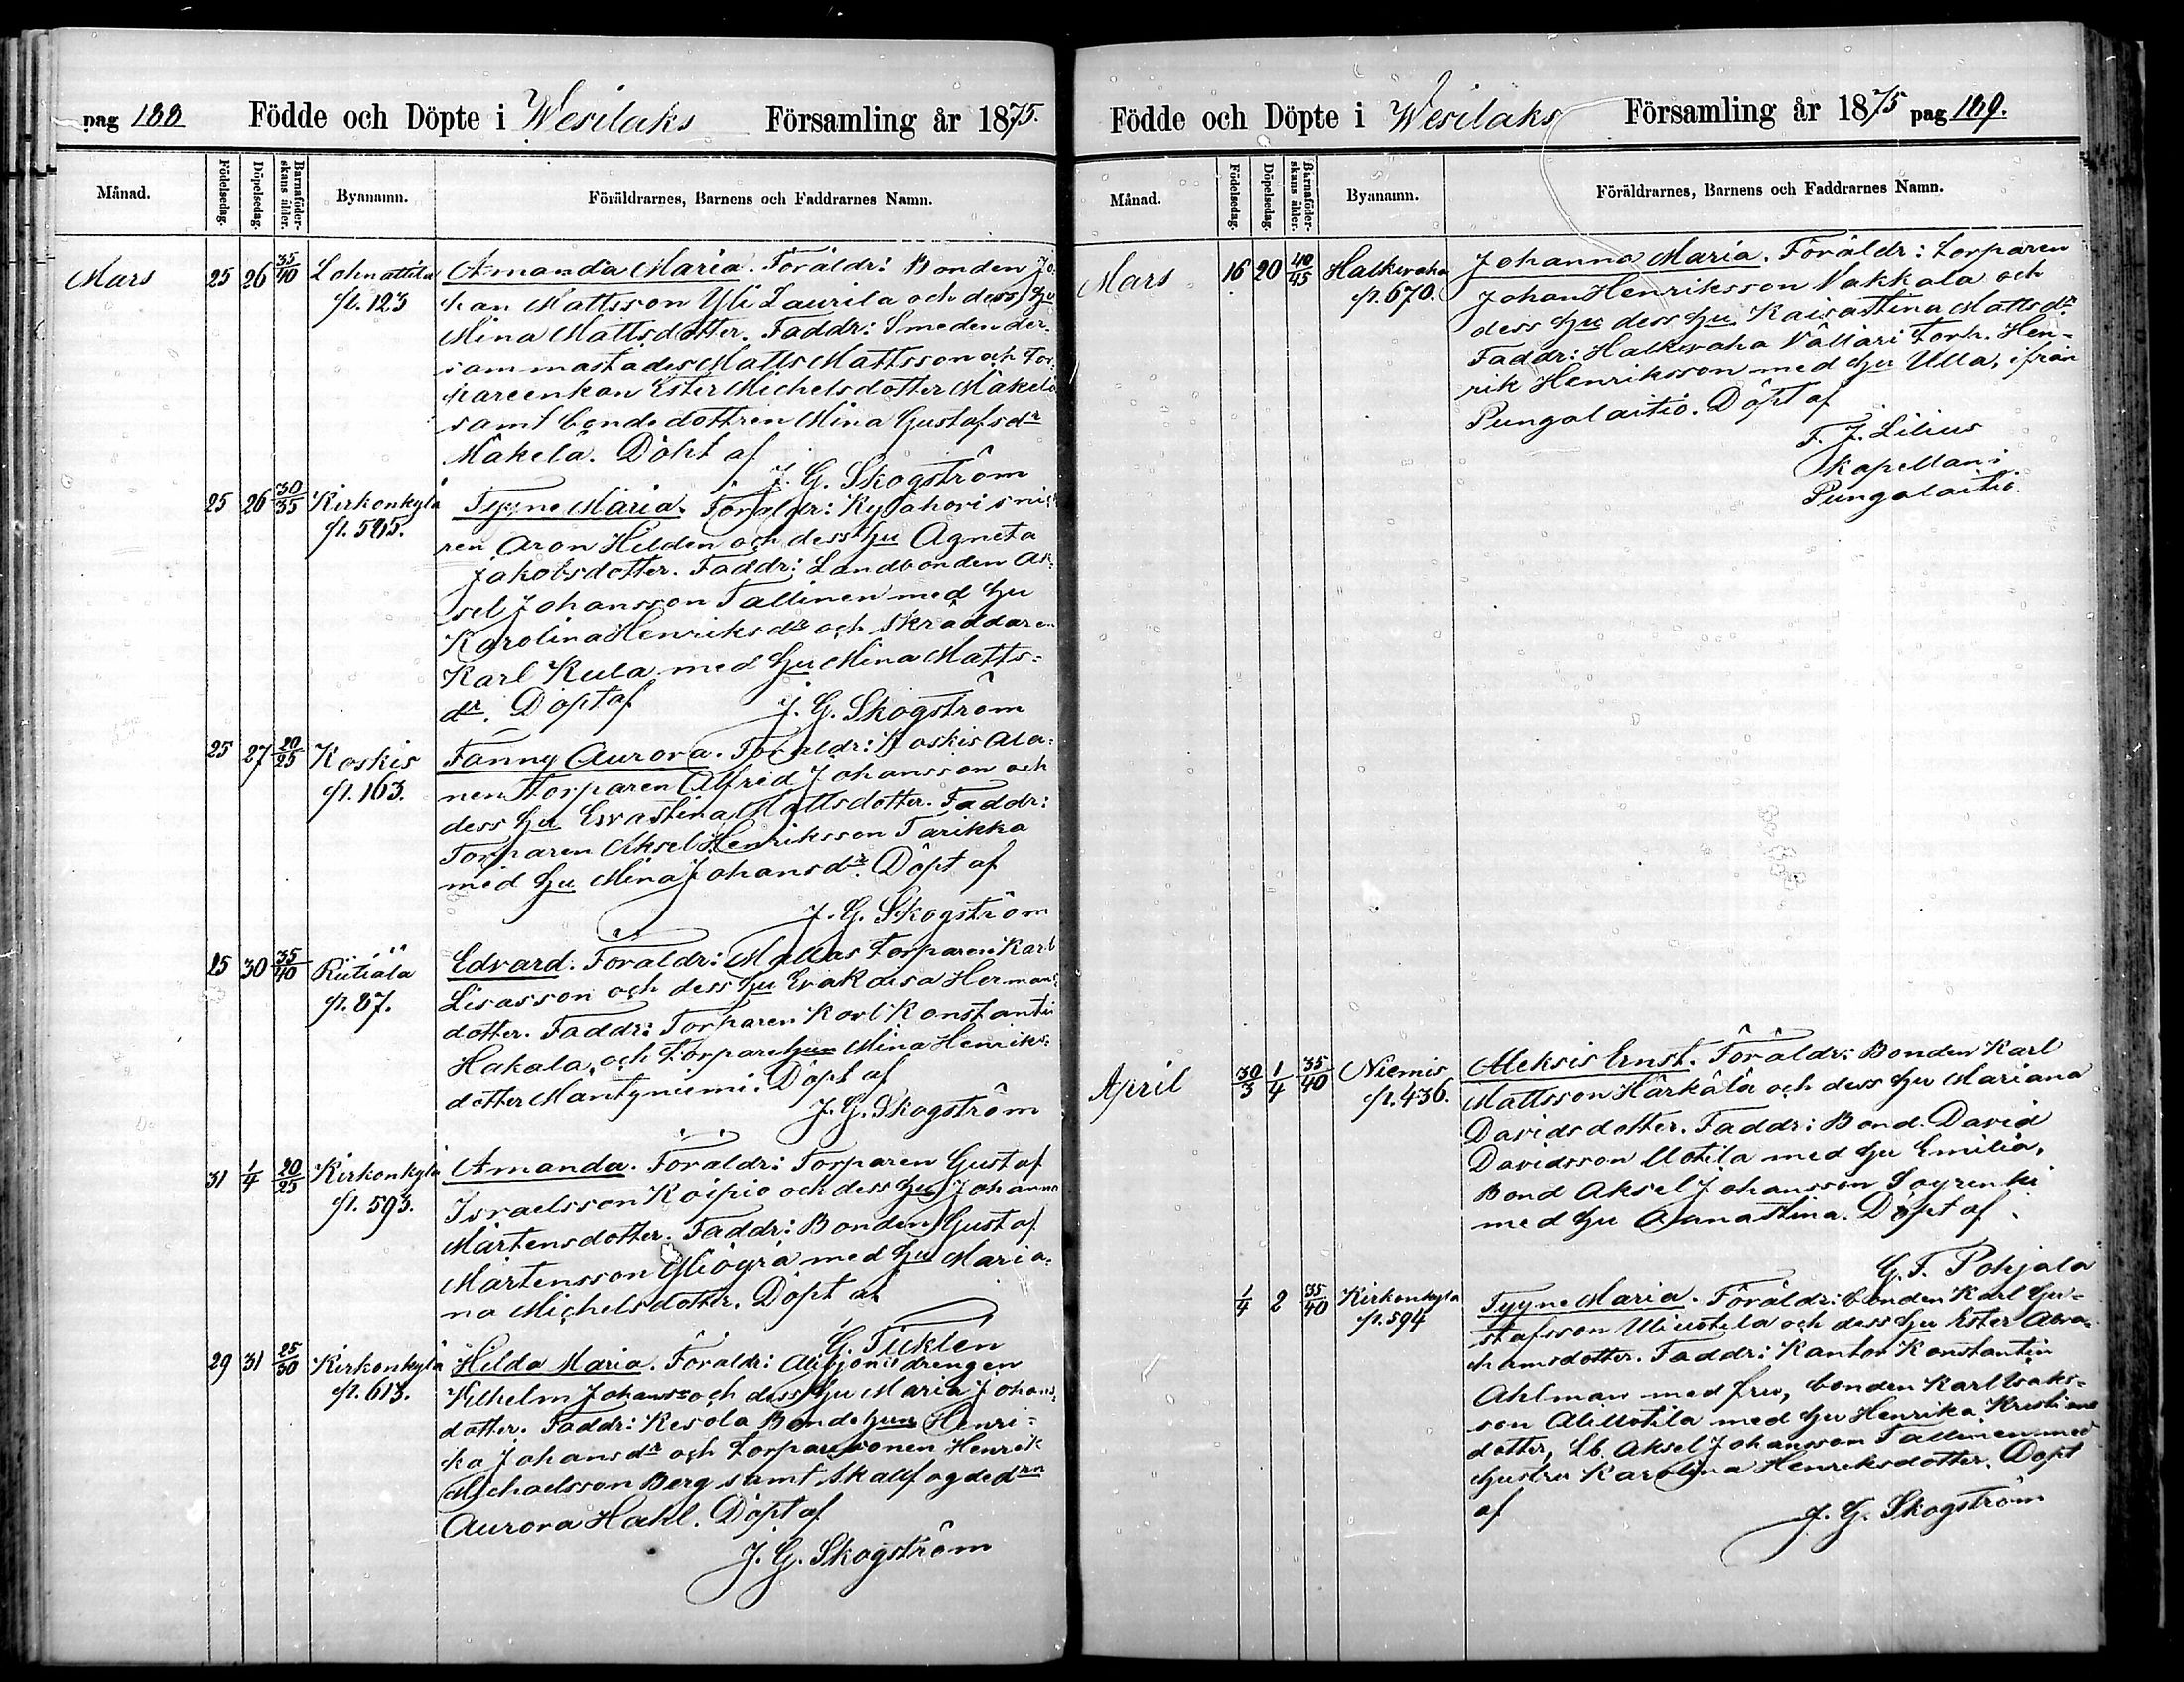 pag 188 Födde och Döpte i Wesilaks Församling år 1875.
Månad. Födelsedag. Döpelsedag. Barnaföder-skans ålder. Byanamn. Föräldrarnes, Barnens och Faddrarnes Namn.
Mars 25 26 35/40 Lohnattila Amanda Maria. Föräldr: Bonden Jo-
p. 123 han Mattsson Yli Laurila och dess hu
Mina Mattsdotter. Faddr: Smeden der-
sammastädes Matts Mattsson och Tor-
pareenkan Ester Michelsdotter Mäkelä
samt bondedottren Mina Gustafsdr
Mäkelä. Döpt af
J. G. Skogström
25 26 30/35 Kirkonkylä Tyyne Maria. Föräldr:
p. 585. ren Aron Hilden och dess hu Agneta
Jakobsdotter. Faddr: Landbonden Ak-
sel Johansson Tallinen med hu
Karolina Henriksdr och Skräddaren
Karl Kula med hu Mina Matts-
dr. Döpt af J. G. Skogström
25 27 20/25 Koskis Fanny Aurora. Föräldr: Koskis Ala-
p. 163. nen Torparen Alfred Johansson och
dess hu Evastina Mattsdotter. Faddr:
Torparen Aksel Henriksson Tarikka
med hu Mina Johansdr. Döpt af
J. G. Skogström
25 30 35/40 Riitiälä Edvard. Föräldr: Mattas Torparen Karl
p. 87. Lisasson och dess hu Eva Kaisa Hermans-
dotter. Faddr: Torparen Karl Konstantin
Hakala, och Torparehun Mina Henriks-
dotter Mäntyniemi. Döpt af
J. G. Skogström
31 1/4 20/25 Kirkonkylä Amanda. Föräldr: Torparen Gustaf
p. 593. Israelsson Koipio och dess hu Johanna
Mårtensdotter. Faddr: Bonden Gustaf
Mårtensson med hu Maria-
na Michelsdotter. Döpt af
G. Ticklén
29 31 25/30 Kirkonkylä Hilda Maria. Föräldr: drengen
p. 613. Vilhelm Johansson och dess hu Maria Johans-
dotter. Faddr: Kesola Bondehun Henri-
ka Johansdr och Torparesonen Henrik
Michaelsson Berg samt Skallfogdedrn
Aurora Hahl. Döpt af
J. G. Skogström
Födde och Döpte i Wesilaks Församling år 1875 pag 189.
Månad. Födelsedag. Döpelsedag. Barnaföder-skans ålder. Byanamn. Föräldrarnes, Barnens och Faddrarnes Namn.
Mars 16 20 40/45 Halkivaha Johanna Maria. Föräldr: Torparen
p. 670. Johan Henriksson Vakkala och
dess hu dess hu Kaisastina Mattsdr.
Faddr: Halkivaha Vällari Torp. Hen-
rik Henriksson med hu Ulla, ifrån
Pungalaitio. Döpt af
F. J. Lilius
kapellan i
Pungalaitio.
April 30/3 1/4 35/40 Niemis Aleksis Ernst. Föräldr: Bonden Karl
p. 436. Mattsson Härkälä och dess hu Mariana
Davidsdotter. Faddr: Bond. David
Davidsson Uotila med hu Emilia,
Bond Aksel Johansson Soyrinki
med hu Annastina. Döpt af
G. F. Pohjala
1/4 2 35/40 Kirkonkylä Tyyne Maria. Föräldr: bonden Karl Gu-
p. 594 stafsson Uliuotila och dess hu Ester Abra-
hamsdotter. Faddr: Kantor Konstantin
Ahlman med fru, bonden Karl Isaks-
son Aliuotila med hu Henrika Kristians
dotter, Lb. Aksel Johansson Tallinen med
hustru Karolina Henriksdotter. Döpt
af J. G. Skogström